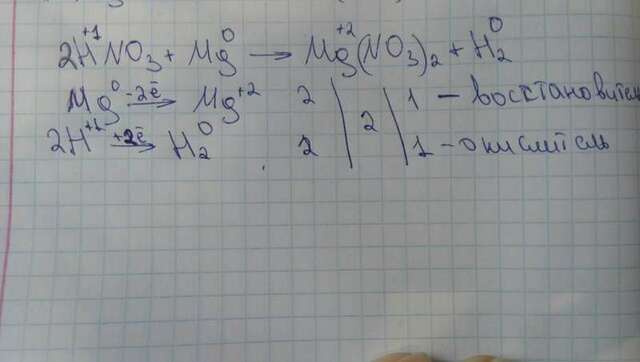 2H⁺¹NO₃ + Mg⁰ → Mg⁺²(NO₃)₂ + H₂⁰
Mg⁰ -2ē → Mg⁺² 2 | 2 | 1 - восстановитель
2H⁺¹ +2ē → H₂⁰ 2 | | 1 - окислитель